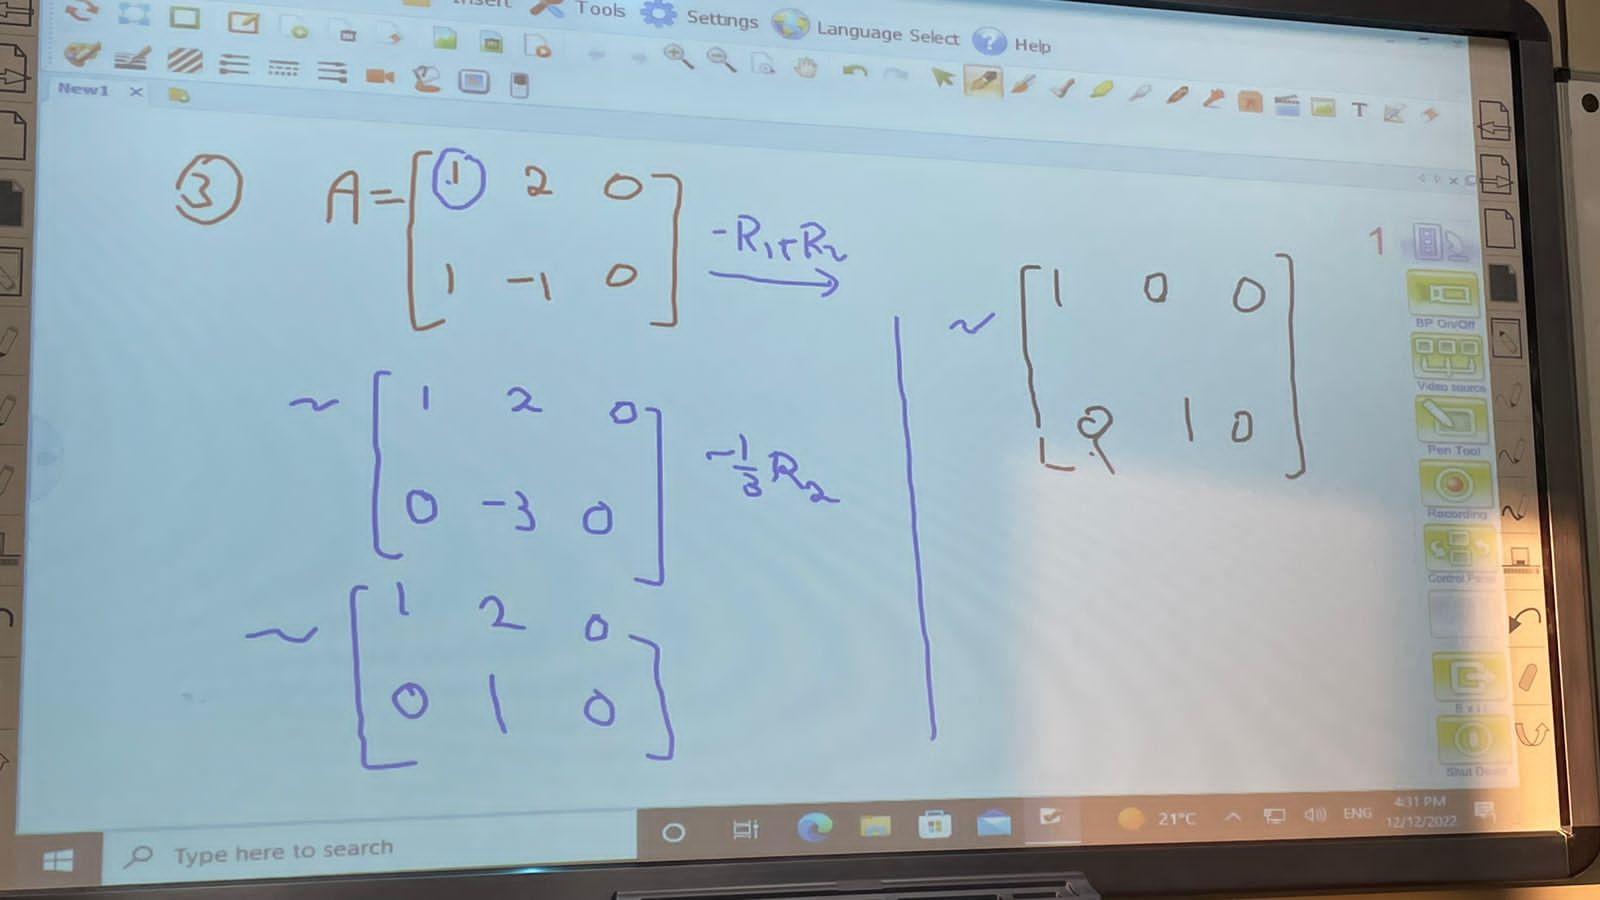 Insert Tools Settings Language Select Help
New1
③ A = [ 1 2 0
1 -1 0 ]
-R₁+R₂
~ [ 1 2 0
0 -3 0 ]
-1/3 R₂
~ [ 1 2 0
0 1 0 ]
~ [ 1 0 0
0 1 0 ]
1
BP On/Off
Video source
Pen Tool
Recording
Control Panel
Exit
Shut Down
Type here to search
21°C ENG 4:31 PM
12/12/2022
T